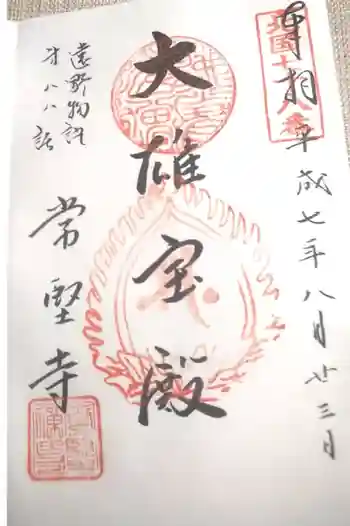 奉拝 平成七年八月廿三月
大雄宝殿
遠野物語
才八八話
常堅寺